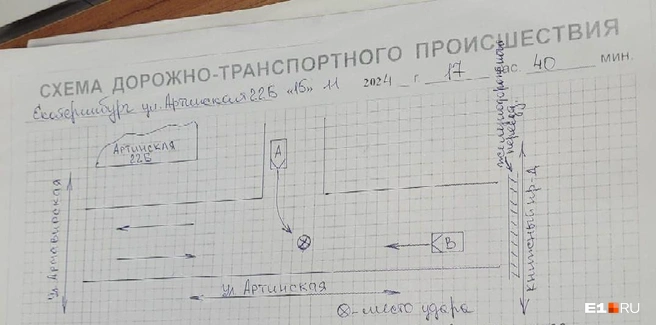 СХЕМА ДОРОЖНО-ТРАНСПОРТНОГО ПРОИСШЕСТВИЯ
Екатеринбург ул. Артинская 22Б «15» 11 2024 г. 17 час. 40 мин.
железнодорожный
переезд
Артинская
22Б
А
В
ул. Армавирская
Книжный пр-д
ул Артинская
⊗-место удара
E1.RU